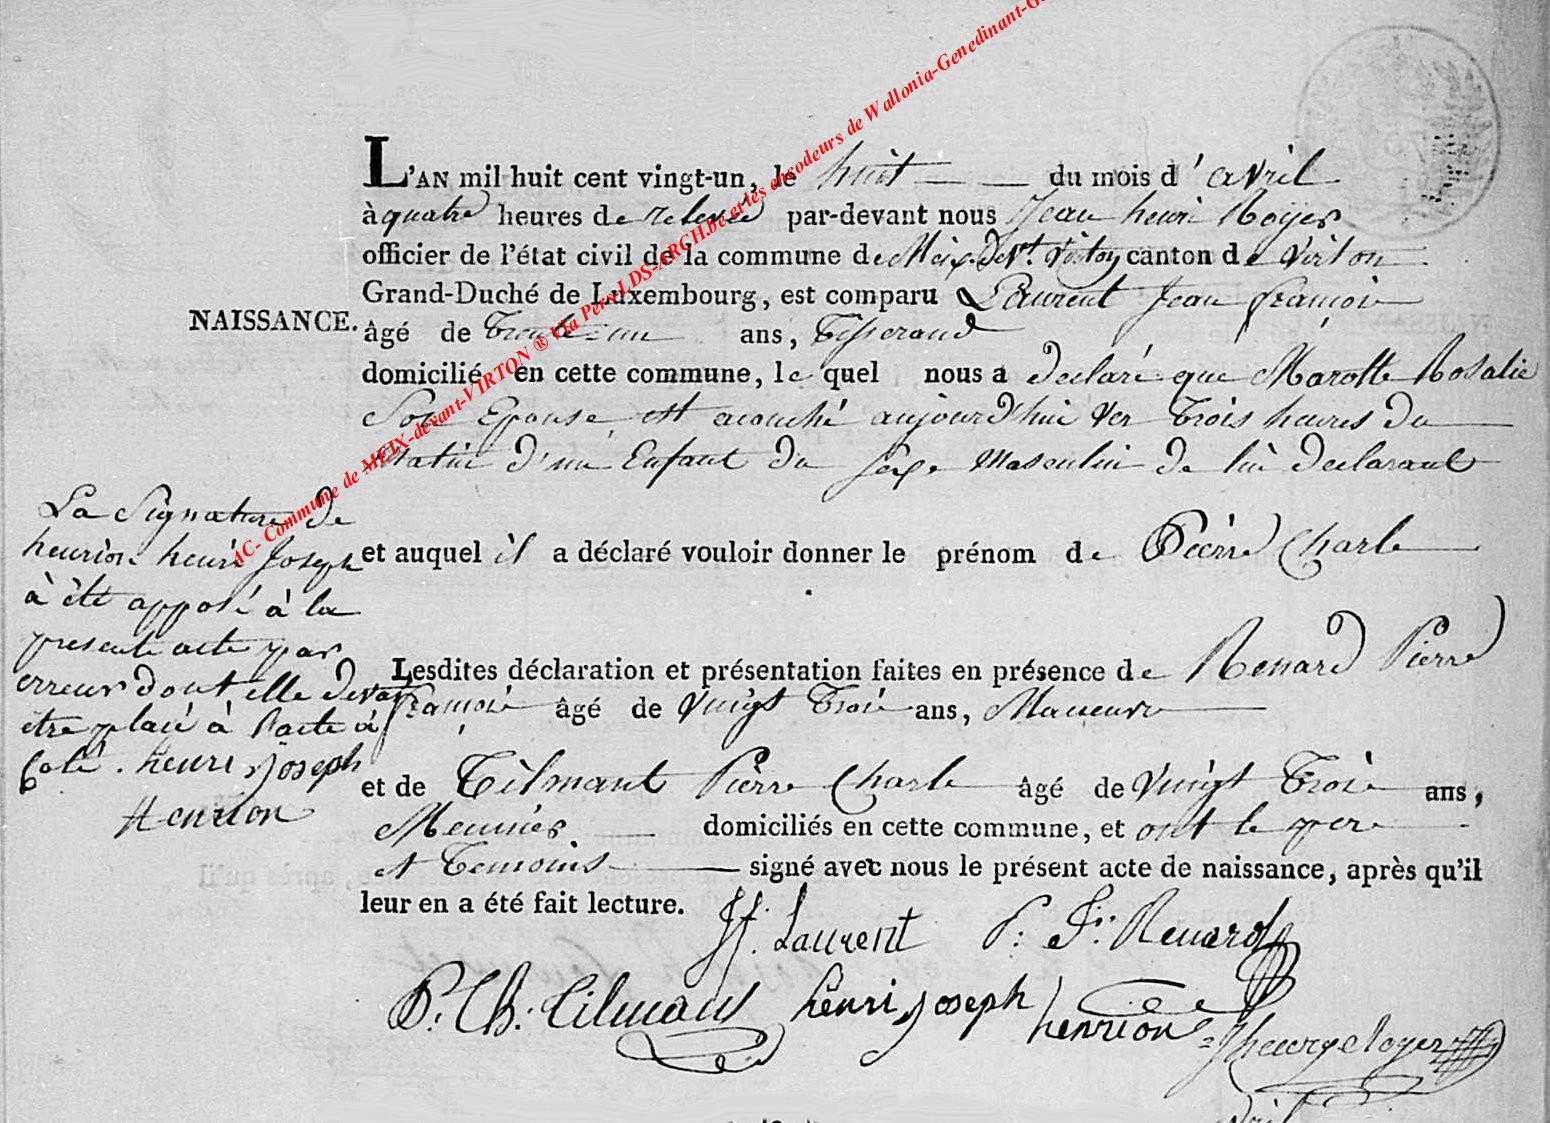 AC- Commune de MEIX-devant-VIRTON ® Via Pers-LDS-ARCH.be et les encodeurs de Wallonia-Genedinant-G
L'AN mil huit cent vingt-un, le huit du mois d'avril
à quatre heures de relevée par-devant nous Jean henri Royer
officier de l'état civil de la commune de Meix. devt. Virton canton de Virton
Grand-Duché de Luxembourg, est comparu Laurent Jean françois
NAISSANCE. âgé de Trente-un ans, Tisserand
domicilié en cette commune, le quel nous a declaré que Marotte Rosalie
Son Epouse est acouché aujourd'hui ver Trois heures du
Matin d'un Enfant du sexe Masculin de lui declarant
et auquel il a déclaré vouloir donner le prénom de Pierre Charle
Lesdites déclaration et présentation faites en présence de Renard Pierre
françois âgé de Vingt Trois ans, Maneuvre
et de Tilmant Pierre Charle âgé de Vingt Trois ans,
Meunier domiciliés en cette commune, et ont le pere
et Temoins signé avec nous le présent acte de naissance, après qu'il
leur en a été fait lecture.
La Signature de
henrion henri Joseph
à été apposé à la
presente acte par
erreur dont elle devai
être placé à l'acte à
Coté. henri joseph
Henrion
JF. Laurent P: Fr: Renard
P. Ch: Tilmant henri joseph
henrion Jhenry Royer